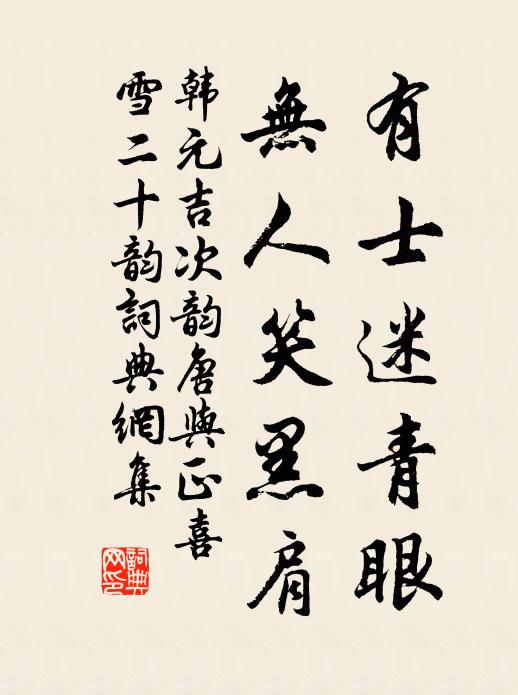 有士迷青眼
無人笑黑肩
韩元吉次韵唐與正喜
雪二十韵詞典網集
詞典网印